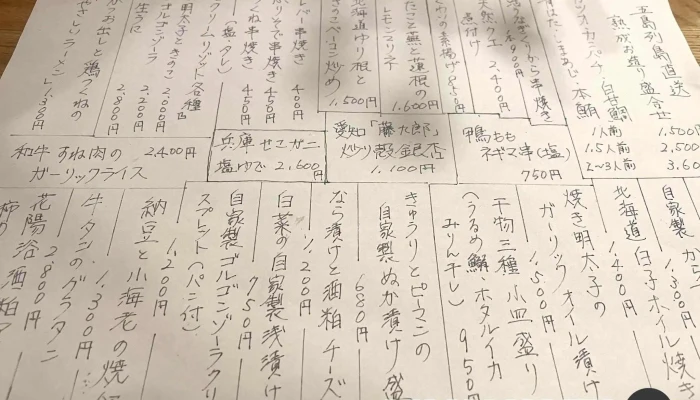 五島列島直送
熟成お造り盛合せ
1人前 1,500
1.5人前 2,500
2〜3人前 3,60
本鮪
活うなぎ
から串焼き
天然クエ
煮付け
2,400円
の素揚げ 850円
たこと蕪と蓮根の
レモンマリネ
1,600円
北海道ゆり根と
きのこベーコン炒め
1,500円
レバー串焼き 400円
串焼き 450円
くね串焼き 450円
(塩・タレ)
クリームリゾット各種
明太子ときのこ 2,000円
ゴルゴンゾーラ 2,200円
生うに 2,800円
お出しと鶏つくねの
やさしいラーメン 1,300円
和牛すね肉の
ガーリックライス
2,400円
兵庫 セコガニ
塩ゆで 2,600円
愛知「藤九郎」
炒り殻銀杏
1,100円
鴨もも
ネギマ串(塩)
750円
自家製
1,300円
北海道 白子ホイル焼き
1,400円
焼き明太子の
ガーリックオイル漬け
1,500円
干物三種小皿盛り
(うるめ鰯 ホタルイカ
みりん干し) 950円
きゅうりとピーマンの
自家製ぬか漬け盛
680円
なら漬けと酒粕チーズ
1,200円
白菜の自家製浅漬け
750円
自家製ゴルゴンゾーラクリ
スプレット(パン付)
1,200円
納豆と小海老の焼
1,300円
牛タンのグラタン
2,800円
花陽浴酒粕